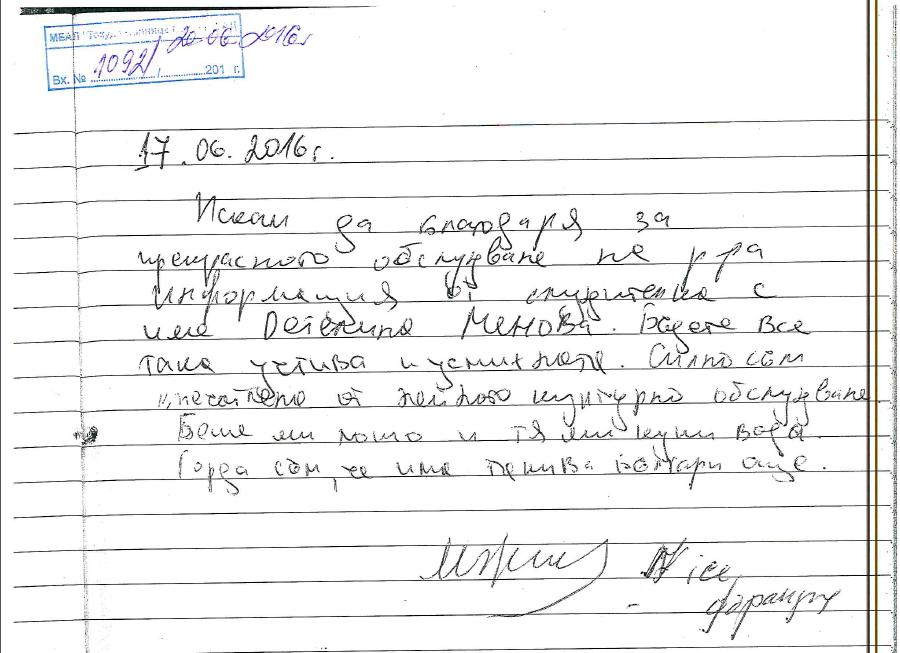 МБАЛ "Токуда
Вх. № 1092 / 20 06 2016г
201 г.
17.06.2016г.
Искам да благодаря за
прекрасното обслужване на
информация от служителка с
име Детелина Менова. Бъдете все
така учтива и усмихната. Силно съм
впечатлена от нейното културно обслужване
Беше ми лошо и тя ми купи вода.
Горда съм, че има такива българи още.
Nice,
Франция